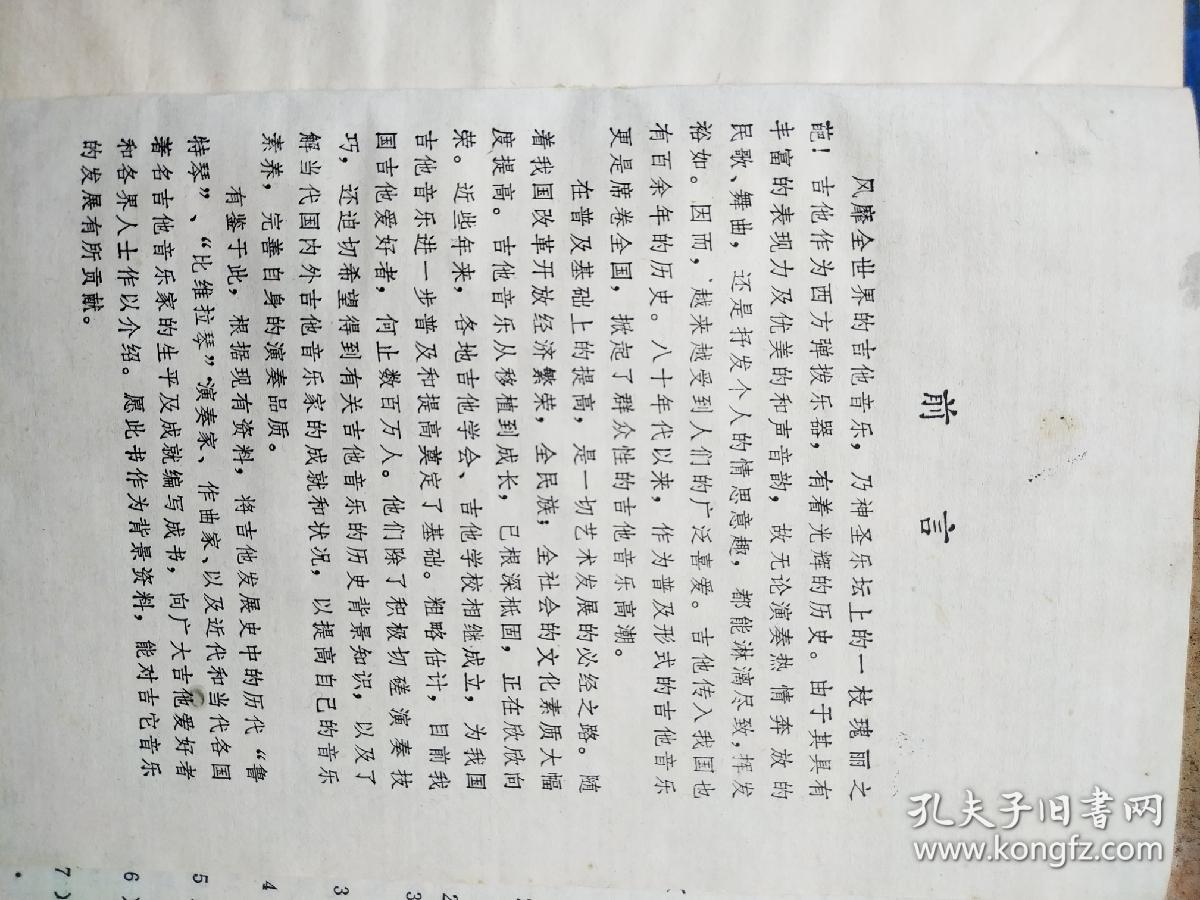 前言
风靡全世界的吉他音乐，乃神圣乐坛上的一枝瑰丽之
葩！吉他作为西方弹拨乐器，有着光辉的历史。由于其具有
丰富的表现力及优美的和声音韵，故无论演奏热情奔放的
民歌、舞曲，还是抒发个人的情思意趣，都能淋漓尽致，挥发
裕如。因而，越来越受到人们的广泛喜爱。吉他传入我国也
有百余年的历史。八十年代以来，作为普及形式的吉他音乐
更是席卷全国，掀起了群众性的吉他音乐高潮。
在普及基础上的提高，是一切艺术发展的必经之路。随
着我国改革开放经济繁荣，全民族；全社会的文化素质大幅
度提高。吉他音乐从移植到成长，已根深柢固，正在欣欣向
荣。近些年来，各地吉他学会、吉他学校相继成立，为我国
吉他音乐进一步普及和提高奠定了基础。粗略估计，目前我
国吉他爱好者，何止数百万人。他们除了积极切磋演奏技
巧，还迫切希望得到有关吉他音乐的历史背景知识，以及了
解当代国内外吉他音乐家的成就和状况，以提高自己的音乐
素养，完善自身的演奏品质。
有鉴于此，根据现有资料，将吉他发展史中的历代“鲁
特琴”、“比维拉琴”演奏家、作曲家、以及近代和当代各国
著名吉他音乐家的生平及成就编写成书，向广大吉他爱好者
和各界人士作以介绍。愿此书作为背景资料，能对吉它音乐
的发展有所贡献。
2
3
3
4
5
6）
7）
孔夫子旧书网
www.kongfz.com